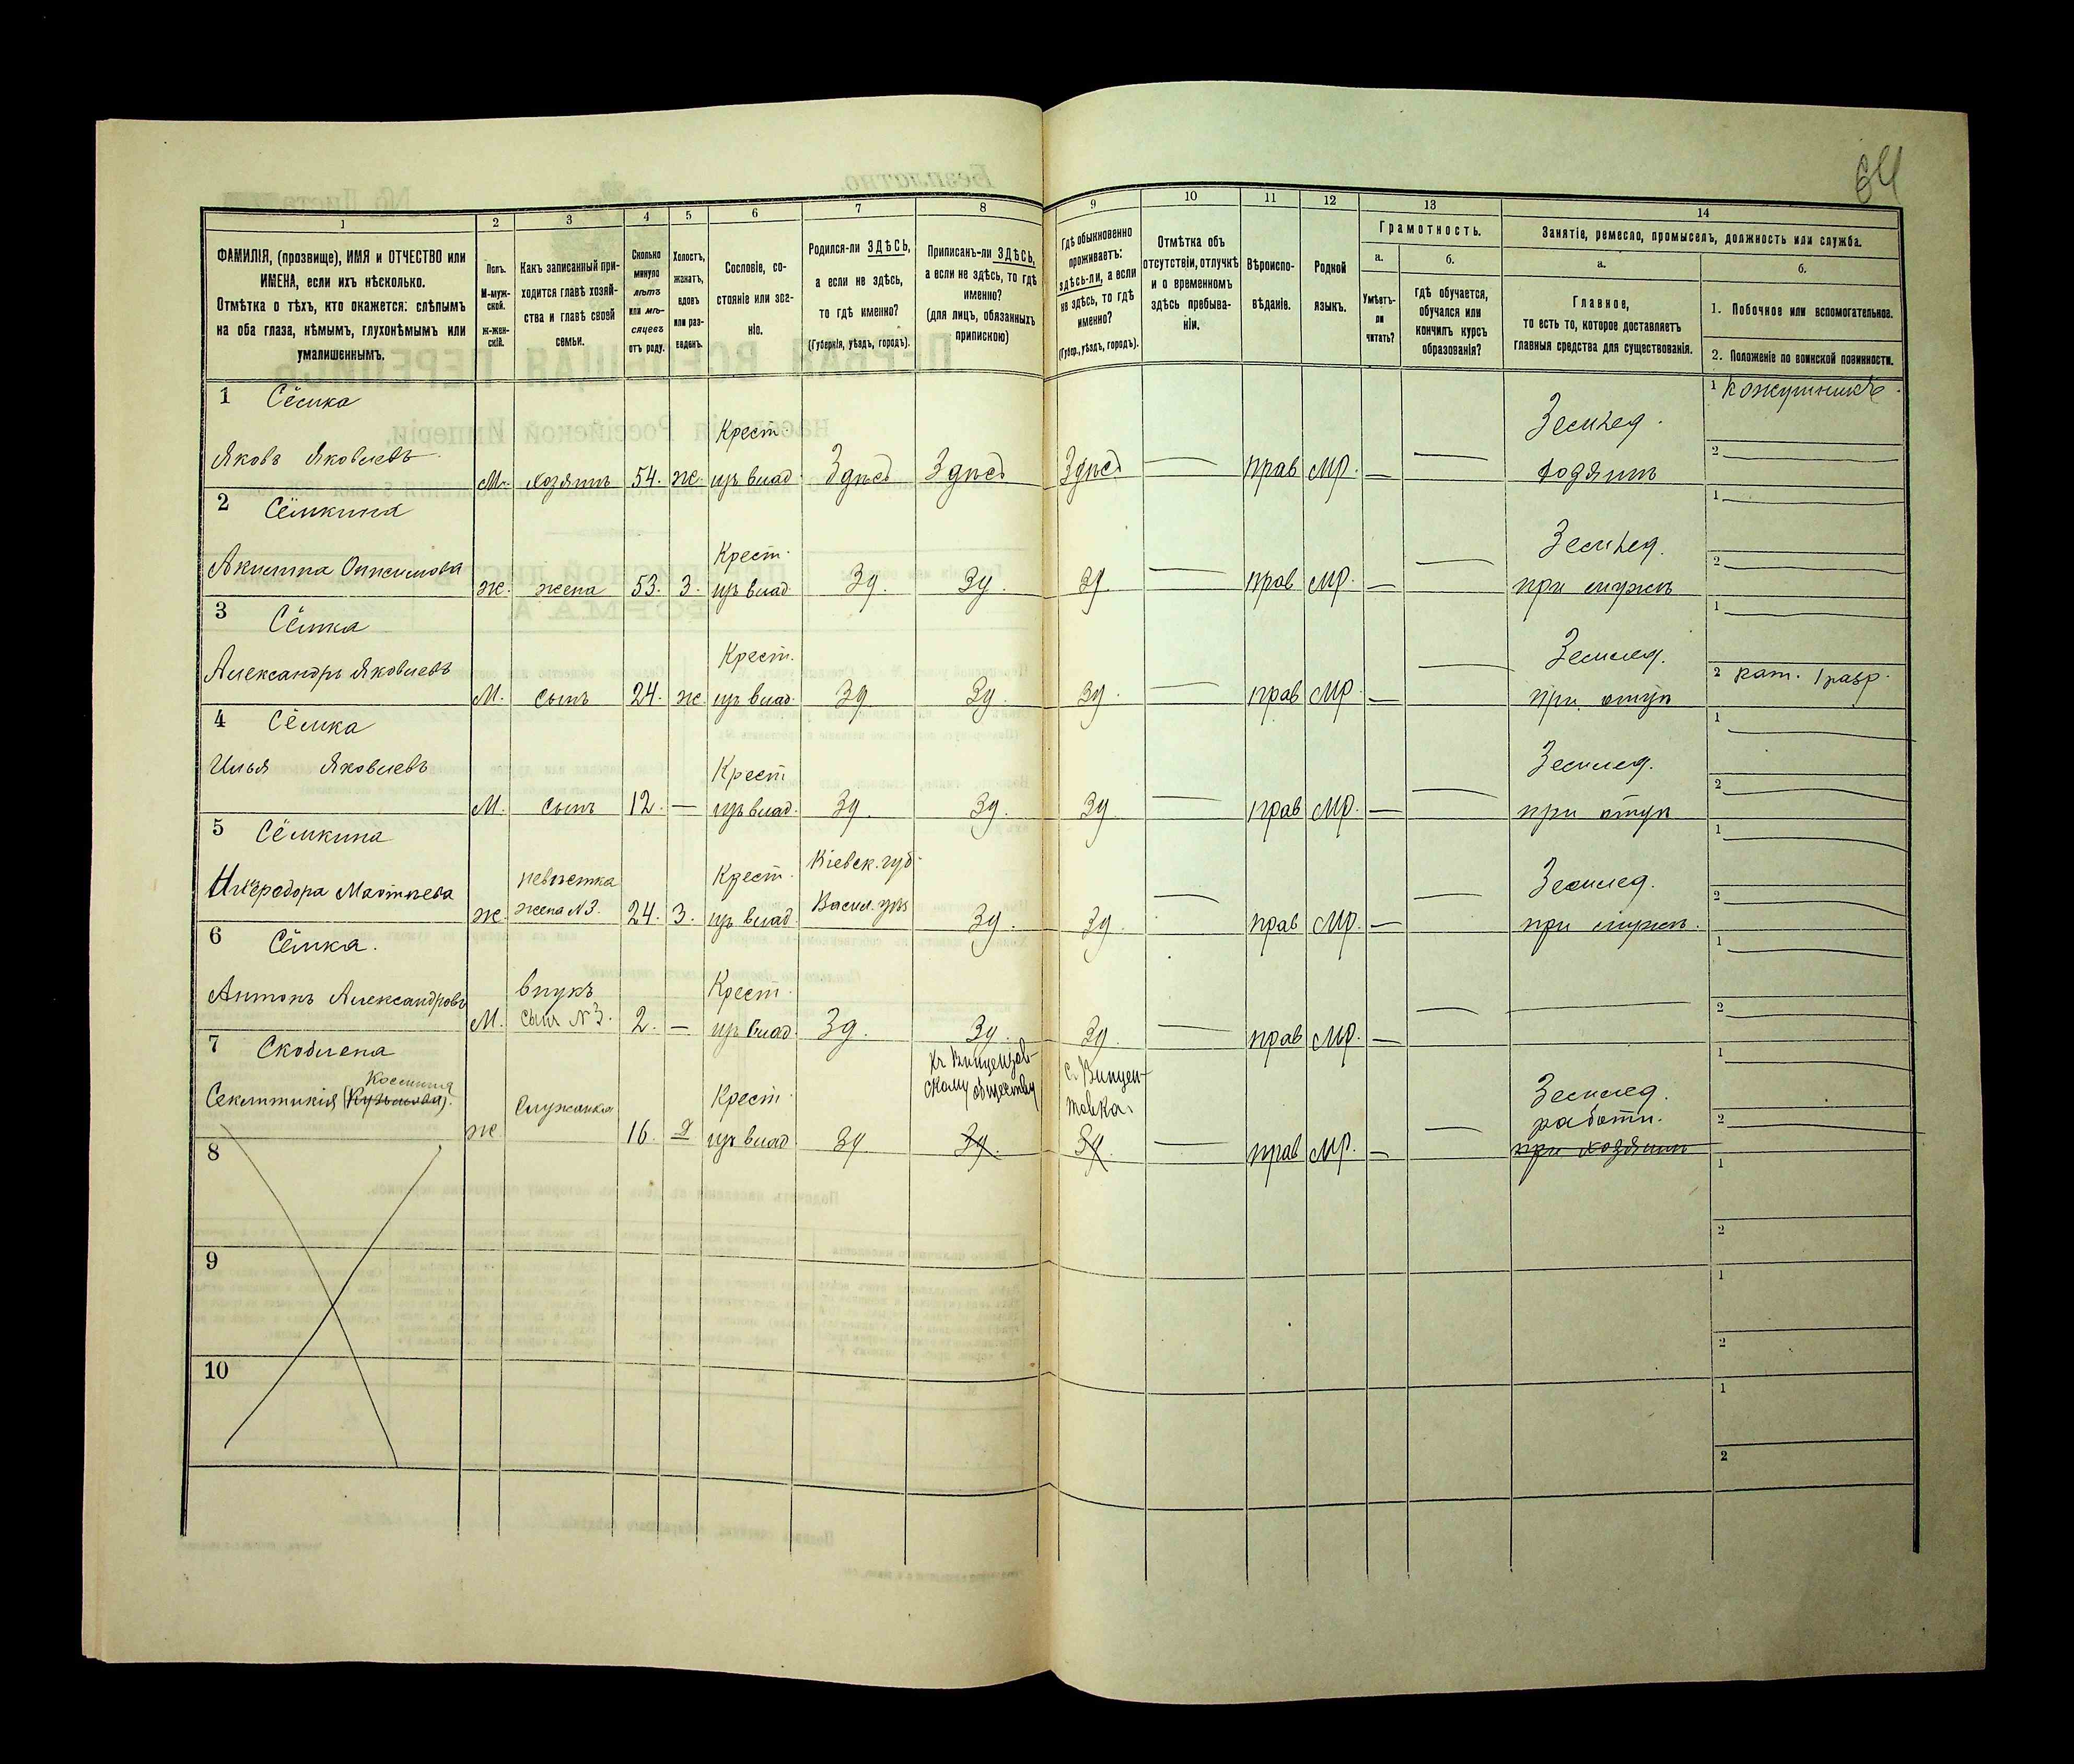 64
1 2 3 4 5 6 7 8 9 10 11 12 13 14
ФАМИЛІЯ, (прозвище), ИМЯ и ОТЧЕСТВО или
ИМЕНА, если ихъ нѣсколько.
Отмѣтка о тѣхъ, кто окажется: слѣпымъ
на оба глаза, нѣмымъ, глухонѣмымъ или
умалишеннымъ.
Полъ.
М-муж-
ской.
Ж-жен-
скій.
Какъ записанный при-
ходится главѣ хозяй-
ства и главѣ своей
семьи.
Сколько
минуло
лѣтъ
или мѣ-
сяцевъ
отъ роду.
Холостъ,
женатъ,
вдовъ
или раз-
веденъ.
Сословіе, со-
стояніе или зва-
ніе.
Родился-ли ЗДѢСЬ,
а если не здѣсь,
то гдѣ именно?
(Губернія, уѣздъ, городъ).
Приписанъ-ли ЗДѢСЬ,
а если не здѣсь, то гдѣ
именно?
(для лицъ, обязанныхъ
припискою)
Гдѣ обыкновенно
проживаетъ:
здѣсь-ли, а если
не здѣсь, то гдѣ
именно?
(Губер., уѣздъ, городъ).
Отмѣтка объ
отсутствіи, отлучкѣ
и о временномъ
здѣсь пребыва-
ніи.
Вѣроиспо-
вѣданіе.
Родной
языкъ.
Грамотность.
а.
Умѣетъ-
ли
читать?
б.
гдѣ обучается,
обучался или
кончилъ курсъ
образованія?
Занятіе, ремесло, промыселъ, должность или служба.
а.
Главное,
то есть то, которое доставляетъ
главныя средства для существованія.
б.
1. Побочное или вспомогательное.
2. Положеніе по воинской повинности.
1 Сёмка
Яковъ Яковлевъ
М. хозяинъ 54. ж. Крест. изъ влад. Здѣсь Здѣсь Здѣсь — прав мр. — — Землед. хозяинъ
1 кожушникъ
2
2 Сёмкина
Акилина Онисимова
ж. жена 53. З. Крест. изъ влад. Зд. Зд. Зд. — прав мр. — — Землед. при мужѣ
1
2
3 Сёмка
Александръ Яковлевъ
М. сынъ 24. ж. Крест. изъ влад. Зд. Зд. Зд. — прав мр. — — Землед. при отцѣ
1
2 рат. 1 разр.
4 Сёмка
Илья Яковлевъ
М. сынъ 12. — Крест. изъ влад. Зд. Зд. Зд. — прав мр. — — Землед. при отцѣ
1
2
5 Сёмкина
Матвѣева
ж. невѣстка жена №3. 24. З. Крест. изъ влад. Кіевск. губ. Васил. уѣз. Зд. Зд. — прав мр. — — Землед. при мужѣ.
1
2
6 Сёмка.
Антонъ Александровъ
М. внукъ сынъ №3. 2. — Крест. изъ влад. Зд. Зд. Зд. — прав мр. — — —
1
2
7
ж Служанка 16. Крест. изъ влад. Зд. Зд. Зд. — прав мр. — — Землед. работн. при хозяинѣ
обществу
с. Винцен-
товка.
1
2
8
1
2
9
1
2
10
1
2